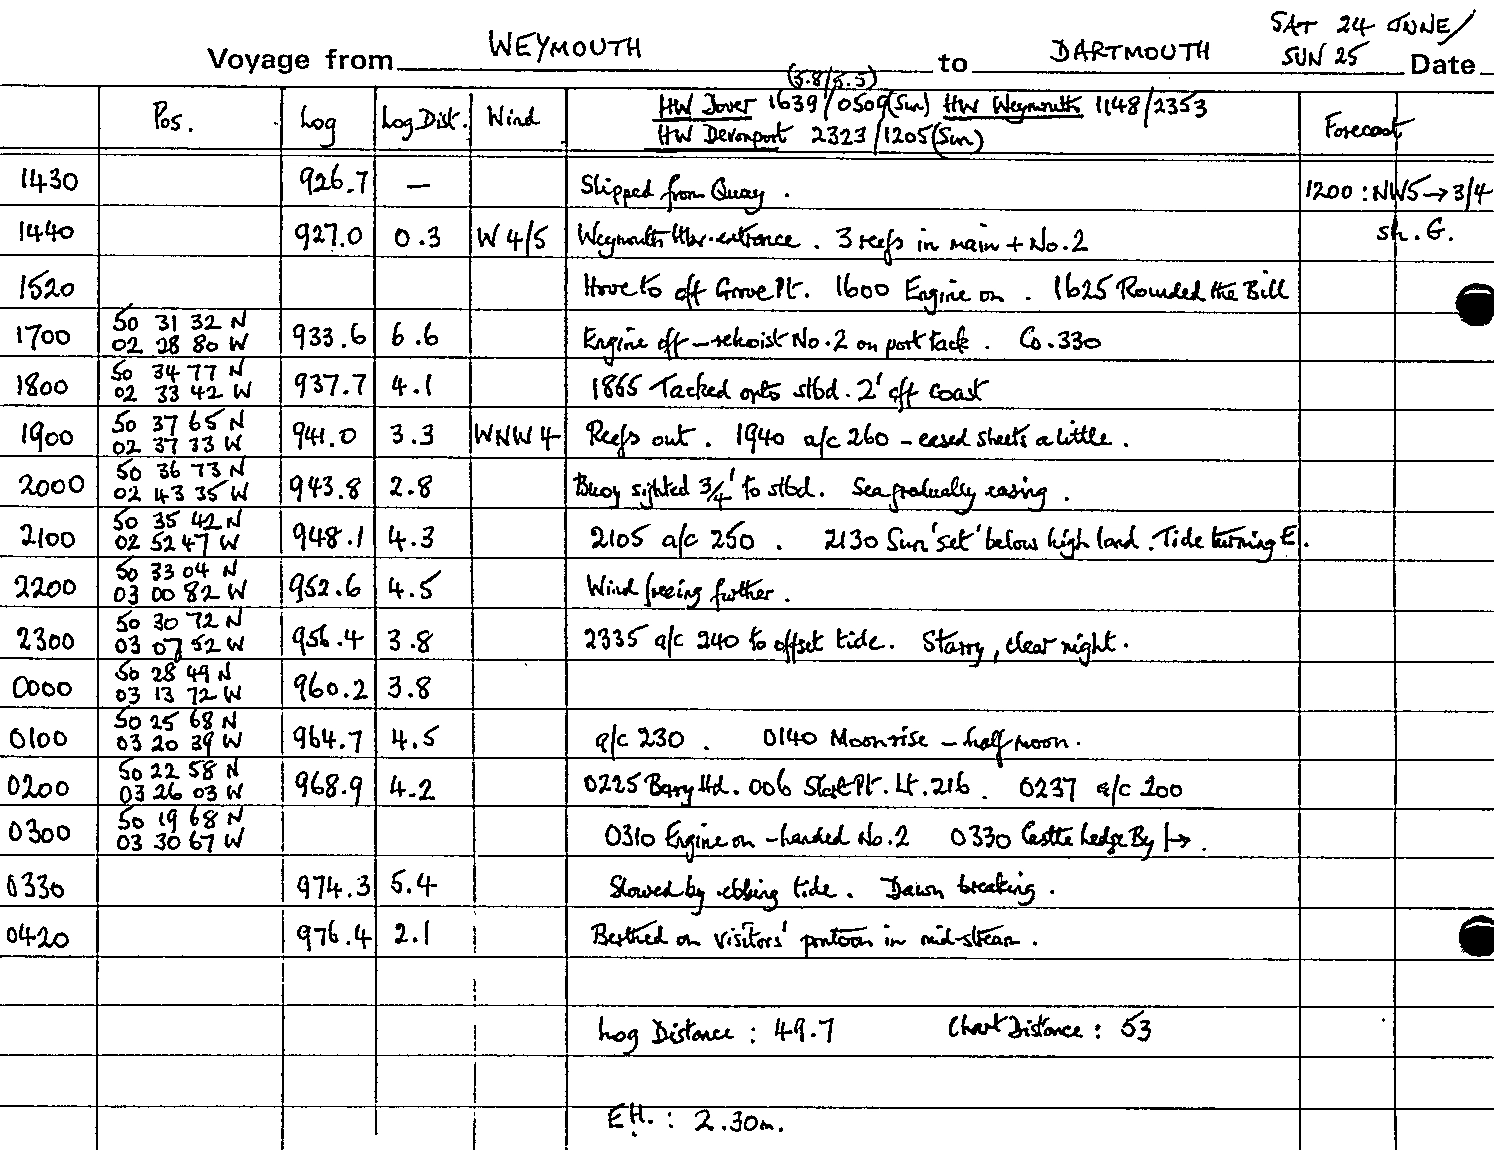 SAT 24 JUNE/
Voyage from WEYMOUTH to DARTMOUTH SUN 25 Date
(5.8/5.5)
Pos. Log Log Dist. Wind HW Dover 1639/0509(Sun) HW Weymouth 1148/2353 Forecast
HW Devonport 2323/1205(Sun)
1430 926.7 — Slipped from Quay. 1200: NW5→3/4
1440 927.0 0.3 W 4/5 Weymouth Hbr. entrance. 3 reefs in main + No.2 sh. G.
1520 Hove to off Grove Pt. 1600 Engine on. 1625 Rounded the Bill
50 31 32 N
1700 02 28 80 W 933.6 6.6 Engine off – rehoist No.2 on port tack. Co. 330
50 34 77 N
1800 02 33 42 W 937.7 4.1 1865 Tacked onto stbd. 2' off coast
50 37 65 N
1900 02 37 33 W 941.0 3.3 WNW 4 Reefs out. 1940 a/c 260 – eased sheets a little.
50 36 73 N
2000 02 43 35 W 943.8 2.8 Buoy sighted 3/4' to stbd. Sea gradually easing.
50 35 42 N
2100 02 52 47 W 948.1 4.3 2105 a/c 250. 2130 Sun 'set' below high land. Tide turning E.
50 33 04 N
2200 03 00 82 W 952.6 4.5 Wind freeing further.
50 30 72 N
2300 03 07 52 W 956.4 3.8 2335 a/c 240 to offset tide. Starry, clear night.
50 28 49 N
0000 03 13 72 W 960.2 3.8
50 25 68 N
0100 03 20 39 W 964.7 4.5 a/c 230. 0140 Moonrise – half moon.
50 22 58 N
0200 03 26 03 W 968.9 4.2 0225 Berry Hd. 006 Start Pt. Lt. 216. 0237 a/c 200
50 19 68 N
0300 03 30 67 W 0310 Engine on – handed No.2 0330 Castle Ledge By |→.
0330 974.3 5.4 Slowed by ebbing tide. Dawn breaking.
0420 976.4 2.1 Berthed on visitors' pontoon in mid-stream.
Log Distance: 49.7 Chart Distance: 53
EH.: 2.30m.